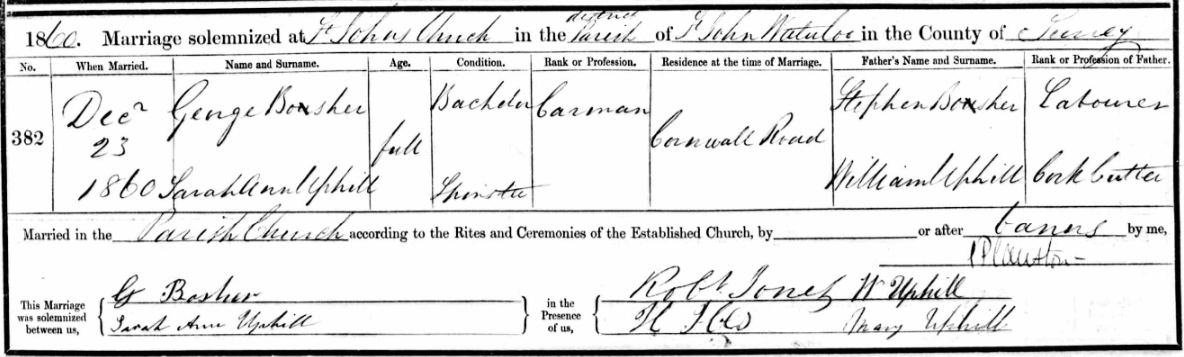 1860. Marriage solemnized at St Johns Church in the district Parish of St John Waterloo in the County of Surrey
No. When Married. Name and Surname. Age. Condition. Rank or Profession. Residence at the time of Marriage. Father's Name and Surname. Rank or Profession of Father.
382 Decr 23 1860 George Bosher full Bachelor Carman Cornwall Road Stephen Bosher Labourer
Sarah Ann Uphill Spinster William Uphill Cork Cutter
Married in the Parish Church according to the Rites and Ceremonies of the Established Church, by or after banns by me,
This Marriage was solemnized between us, G Bosher in the Presence of us, Robt Jones W Uphill
Sarah Ann Uphill Mary Uphill